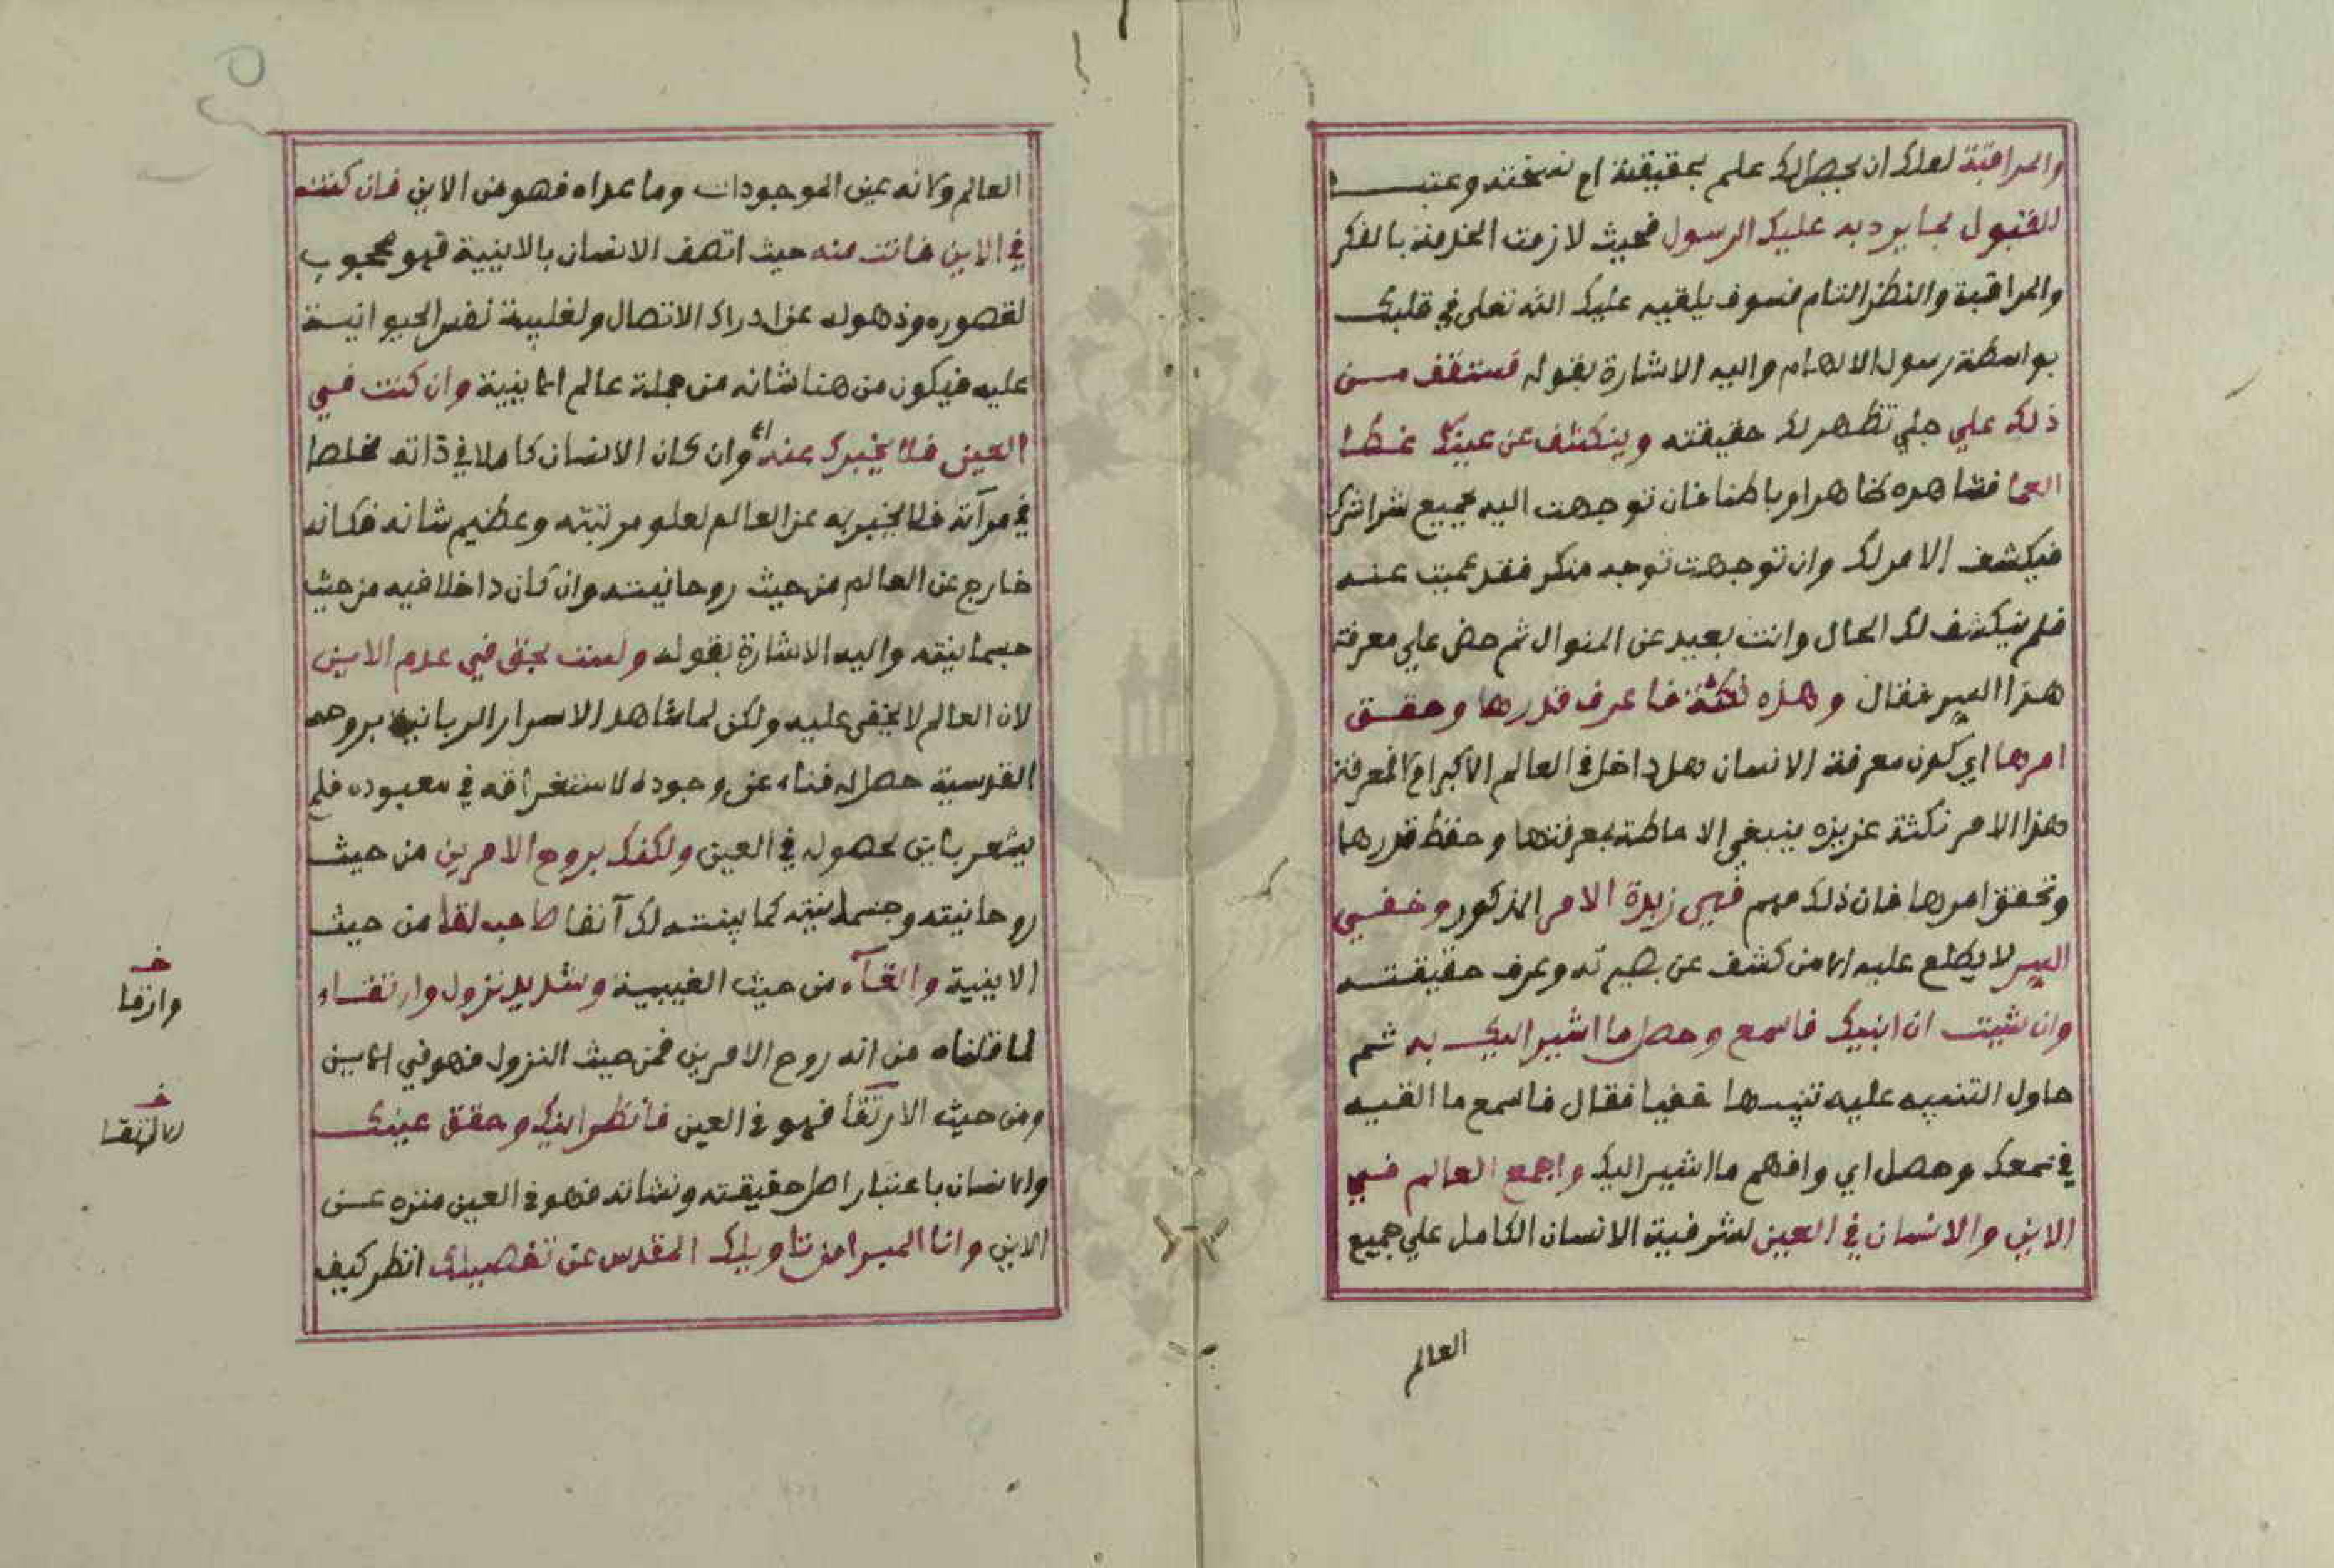 والمراقبة لعلك ان يحصل لك علم بحقيقة ام نسخته وعتب
للقبول لما يرد به عليك الرسول فحيث لازمت الخلوة بالفكر
والمراقبة والنظر التام فسوف يلقيه عليك الله تعلى في قلبك
بواسطة رسول الالهام واليه الاشارة بقوله فستقف من
ذلك علي جلي تظهر لك حقيقته وينكشف عن عينك غطا
العما فشاهده ظاهرا وباطنا فان توجهت اليه بجميع شراشرك
فيكشف الامر لك وان توجهت توجه منكر فقد عميت عنه
فلم ينكشف لك الحال وانت بعيد عن المنوال ثم حض علي معرفة
هذا السر فقال وهذه نكتة فاعرف قدرها وحقق
امرها اي كون معرفة الانسان هل داخل في العالم الاكبر ام لا فمعرفة
هذا الامر نكثة عزيزه ينبغي الاحاطة بمعرفتها وحفظ قدرها
وتحقق امرها فان ذلك مهم فهي زبدة الامر المذكور وخفي
السر لا يطلع عليه الا من كشف عن بصيرته وعرف حقيقته
وان شيت ان انبيك فاسمع وحصل ما اشير اليك به ثم
حاول التنبيه عليه تنبيها خفيا فقال فاسمع ما القيه
في سمعك وحصل اي وافهم ما اشير اليك واجمع العالم في
الاين والانسان في العين لشرفية الانسان الكامل علي جميع
العالم
العالم ولانه عين الموجودات وما عداه فهو من الاين فان كنت
في الاين فانت منه حيث اتصف الانسان بالاينية فهو محجوب
لقصوره وذهوله عن ادراك الاتصال ولغلبة نفس الحيوانية
عليه فيكون من هنا شانه من جملة عالم الاينية وان كنت في
العين فلا يخبرك عنه اي وان كان الانسان كاملا في ذاته مخلصا
في مرآته فلا يخبر به عن العالم لعلو مرتبته وعظيم شانه فكانه
خارج عن العالم من حيث روحانيته وان كان داخلا فيه من حيث
جسمانيته واليه الاشارة بقوله ولست بحق في عدم الاين
لان العالم لا يخفى عليه ولكن لما شاهد الاسرار الربانية بروحه
القدسية حصل له فناء عن وجوده لاستغراقه في معبوده فلم
يشعر باين لحصوله في العين ولكنك بروح الامرين من حيث
روحانيته وجسمانيته كما بينته لك آنفا صاحب لقا من حيث
الاينية والقآء من حيث الغيبية وشديد نزول وارتقاء
لما قلناه من انه روح الامرين فمن حيث النزول فهو في الاين
ومن حيث الارتقا فهو في العين فانظر اليك وحقق عينك
والانسان باعتبار اصل حقيقته ونشاته فهو في العين منزه عن
الاين وانا المبرا من تاويلك المقدس عن تفصيلك انظر كيف